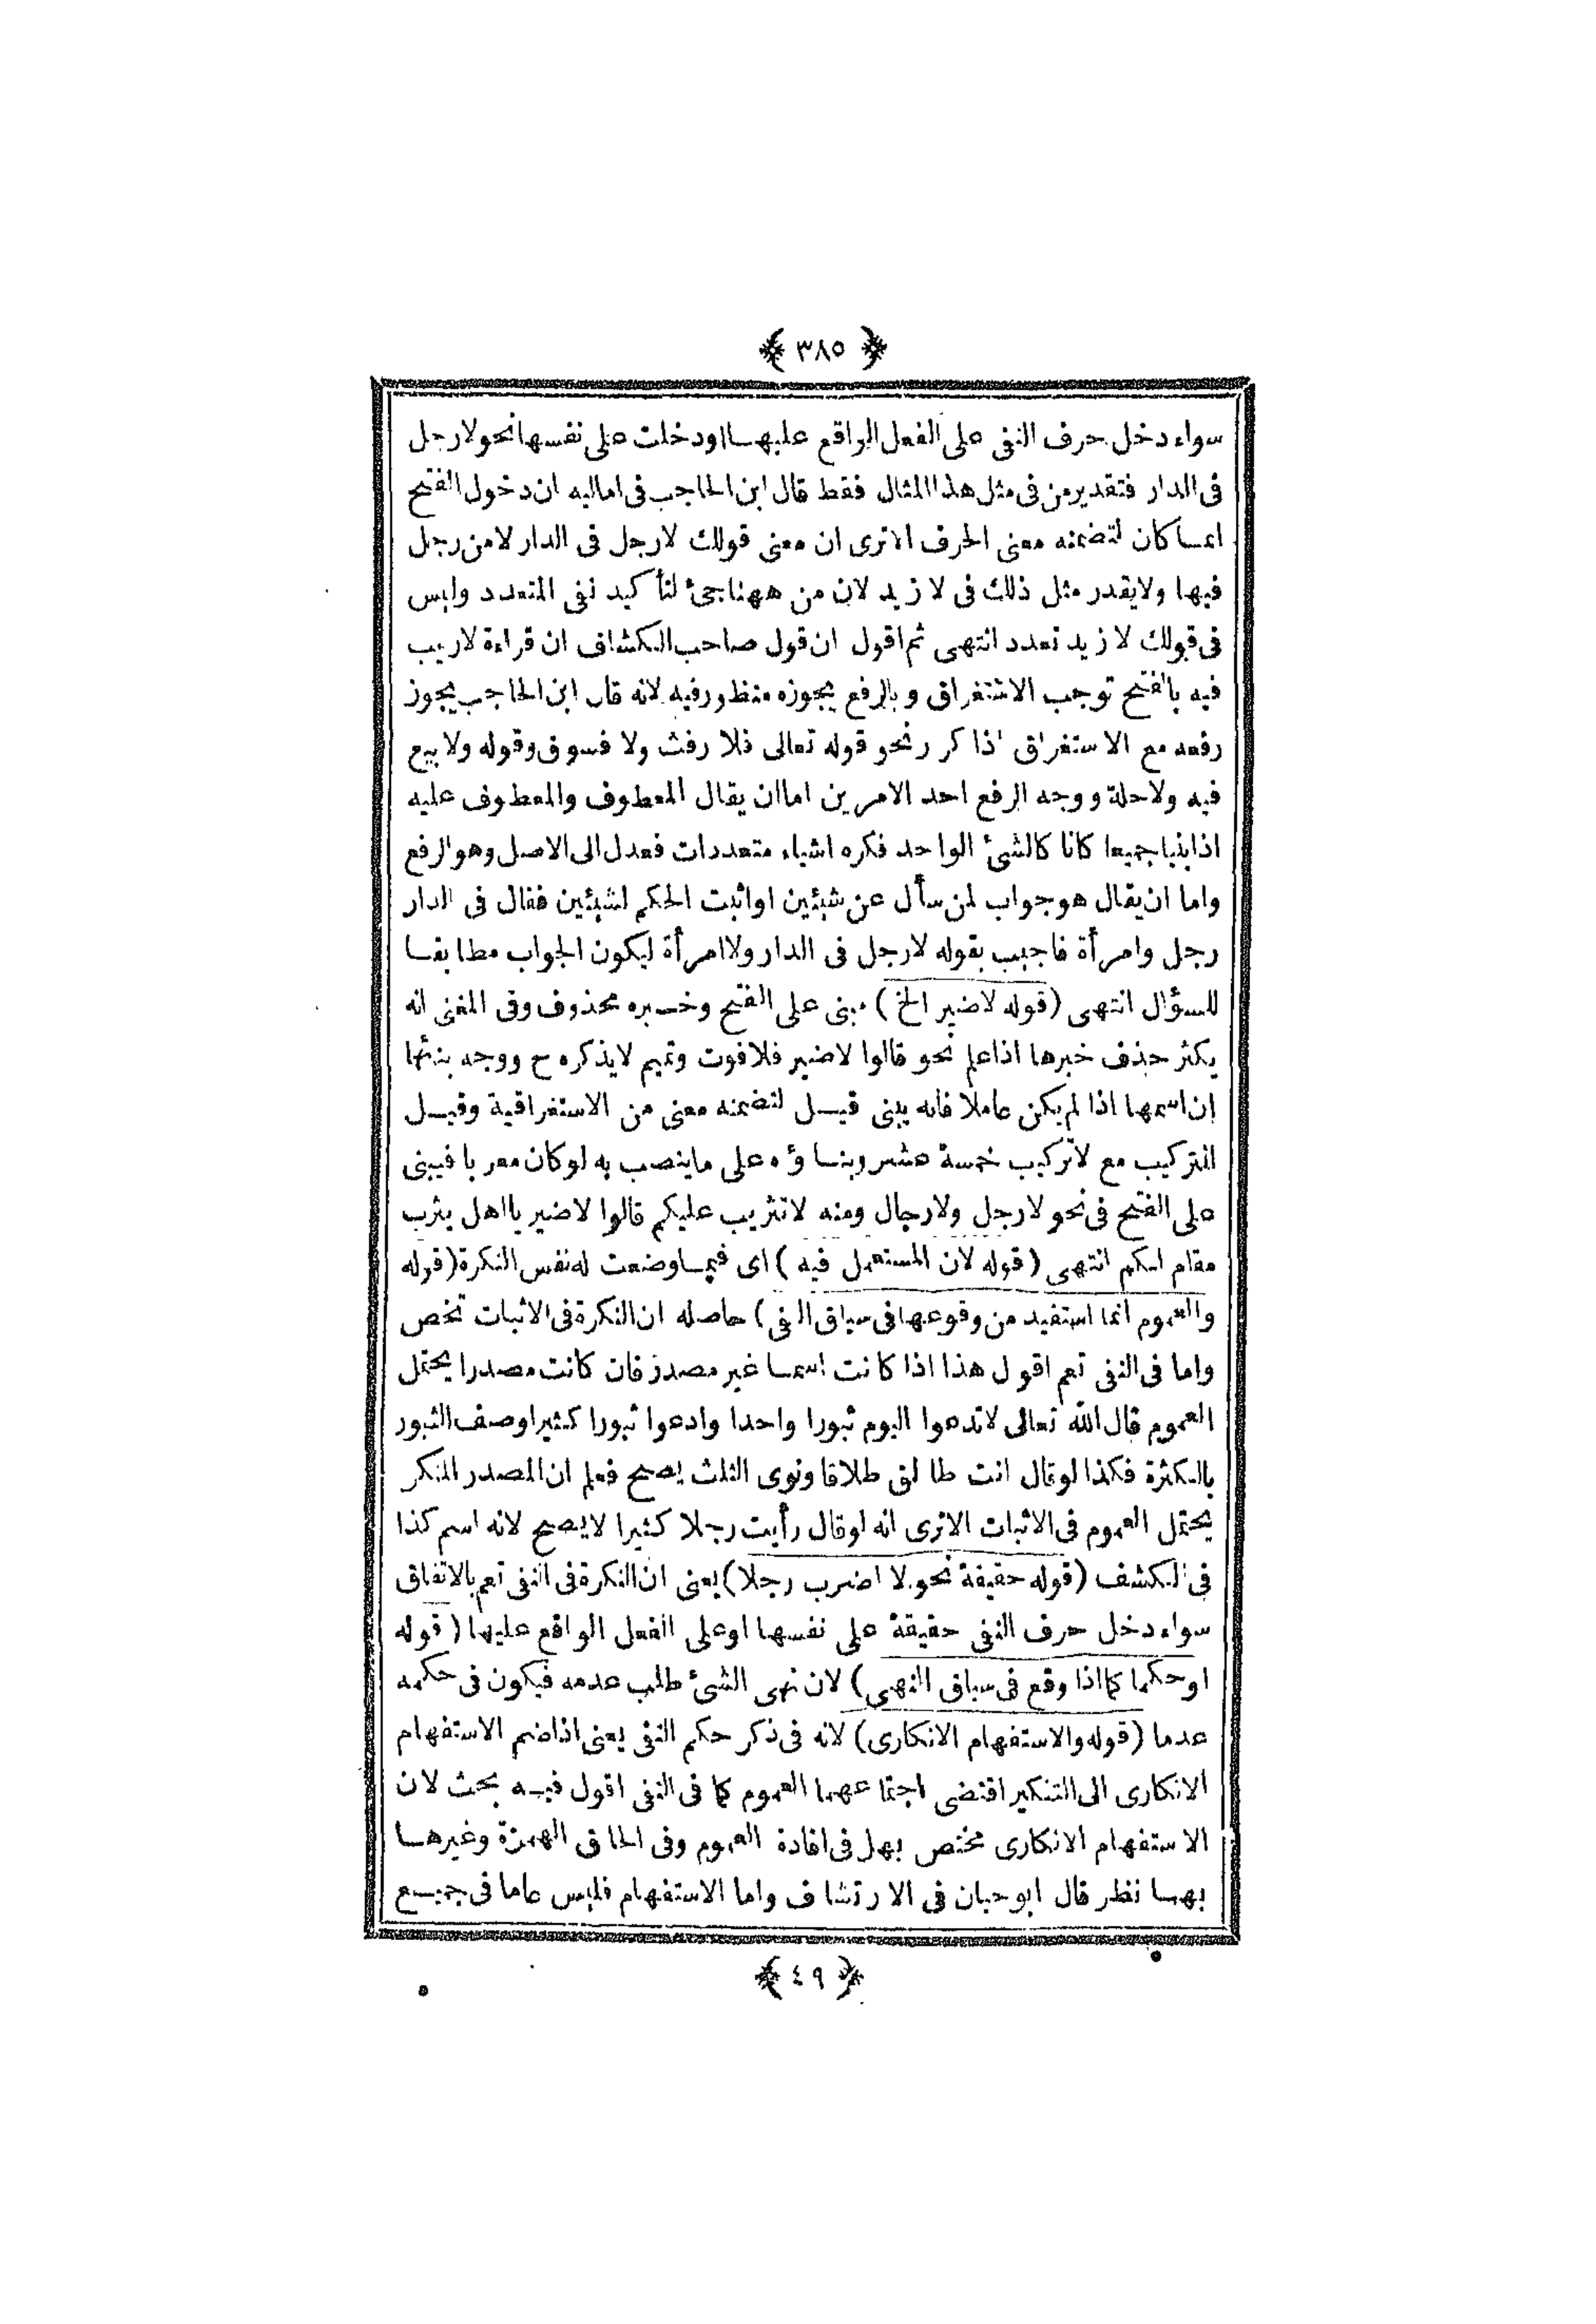 ﴿ ٣٨٥ ﴾
سواء دخل حرف النفى على الفعل الواقع عليهـا اودخلت على نفسها نحو لارجل
فى الدار فتقدير من فى مثل هذا المثال فقط قال ابن الحاجب فى اماليه ان دخول الفتح
انمـا كان لتضمنه معنى الحرف الا ترى ان معنى قولك لارجل فى الدار لا من رجل
فيها ولايقدر مثل ذلك فى لا زيد لان من ههنا جئ لتأكيد نفى المتعدد وليس
فى قولك لا زيد تعدد انتهى ثم اقول ان قول صاحب الكشاف ان قراءة لاريب
فيه بالفتح توجب الاستغراق وبالرفع يجوزه منظور فيه لانه قال ابن الحاجب يجوز
رفعه مع الاستغراق اذا كرر نحو قوله تعالى فلا رفث ولا فسوق وقوله ولا بيع
فيه ولاخلة ووجه الرفع احد الامرين اما ان يقال المعطوف والمعطوف عليه
اذا بنيا جميعا كانا كالشئ الواحد فكره اشياء متعددات فعدل الى الاصل وهو الرفع
واما ان يقال هو جواب لمن سأل عن شيئين او اثبت الحكم لشيئين فقال فى الدار
رجل وامرأة فاجيب بقوله لارجل فى الدار ولا امرأة ليكون الجواب مطابقـا
للسؤال انتهى (قوله لاضير الخ) مبنى على الفتح وخـبره محذوف وفى المغنى انه
يكثر حذف خبرها اذا علم نحو قالوا لاضير فلا فوت وتميم لايذكره ح ووجه بنائها
ان اسمها اذا لم يكن عاملا فانه يبنى قيـل لتضمنه معنى من الاستغراقية وقيـل
التركيب مع لا تركيب خمسة عشر وبنـاؤه على ماينصب به لو كان معربا فيبنى
على الفتح فى نحو لارجل ولارجال ومنه لا تثريب عليكم قالوا لاضير يا اهل يثرب
مقام لكم انتهى (قوله لان المستعمل فيه) اى فيمـا وضعت له نفس النكرة (قوله
والعموم انما استفيد من وقوعها فى سياق النفى) حاصله ان النكرة فى الاثبات تخص
واما فى النفى تعم اقول هذا اذا كانت اسمـا غير مصدر فان كانت مصدرا يحتمل
العموم قال الله تعالى لا تدعوا اليوم ثبورا واحدا وادعوا ثبورا كثيرا وصف الثبور
بالكثرة فكذا لو قال انت طالق طلاقا ونوى الثلث يصح فعلم ان المصدر المنكر
يحتمل العموم فى الاثبات الا ترى انه لو قال رأيت رجلا كثيرا لا يصح لانه اسم كذا
فى الكشف (قوله حقيقة نحو لا اضرب رجلا) يعنى ان النكرة فى النفى تعم بالاتفاق
سواء دخل حرف النفى حقيقة على نفسها او على الفعل الواقع عليها (قوله
او حكما كما اذا وقع فى سياق النهى) لان نهى الشئ طلب عدمه فيكون فى حكمه
عدما (قوله والاستفهام الانكارى) لانه فى ذكر حكم النفى يعنى اذا ضم الاستفهام
الانكارى الى التنكير اقتضى اجتماعهما العموم كما فى النفى اقول فيـه بحث لان
الاستفهام الانكارى مختص بهل فى افادة العموم وفى الحاق الهمزة وغيرهـا
بهـا نظر قال ابو حيان فى الارتشاف واما الاستفهام فليس عاما فى جميـع
﴿ ٤٩ ﴾